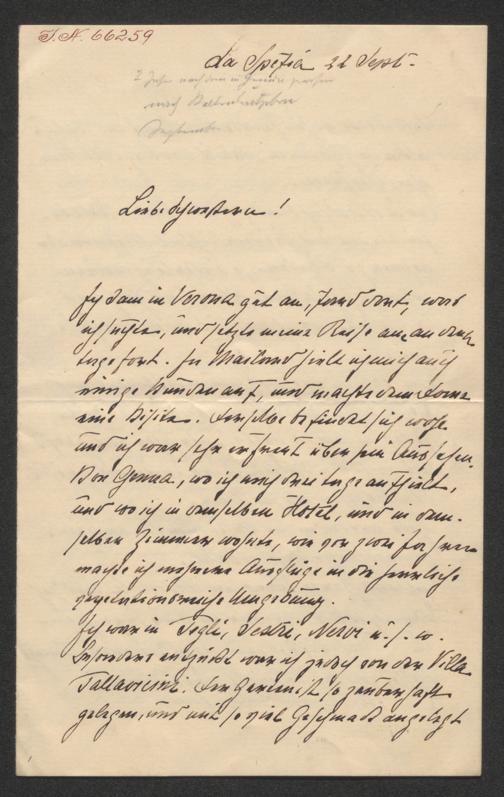 I. N. 66259
La Spezia 22 Sept.
2 Jahre nach dem in Genua
nach
September
Liebe Schwestern!
Ich kam in Verona gut an, fand dort, was
ich suchte, und setzte meine Reise am andern
Tage fort. In Mailand hielt ich mich auch
einige Stunden auf, und machte dem Dome
eine Visite. Derselbe befindet sich wohl
und ich war sehr erfreut über sein Aussehen.
Von Genua, wo ich mich drei Tage aufhielt,
und wo ich in demselben Hotel, und in dem-
selben Zimmer wohnte, wie vor zwei Jahren
machte ich mehrere Ausflüge in die herrliche
vegetationsreiche Umgebung.
Ich war in Pegli, Sestri, Nervi u. s. w.
Besonders entzückt war ich jedoch von der Villa
Pallavicini. Der Garten ist so zauberhaft
gelegen, und mit so viel Geschmack angelegt